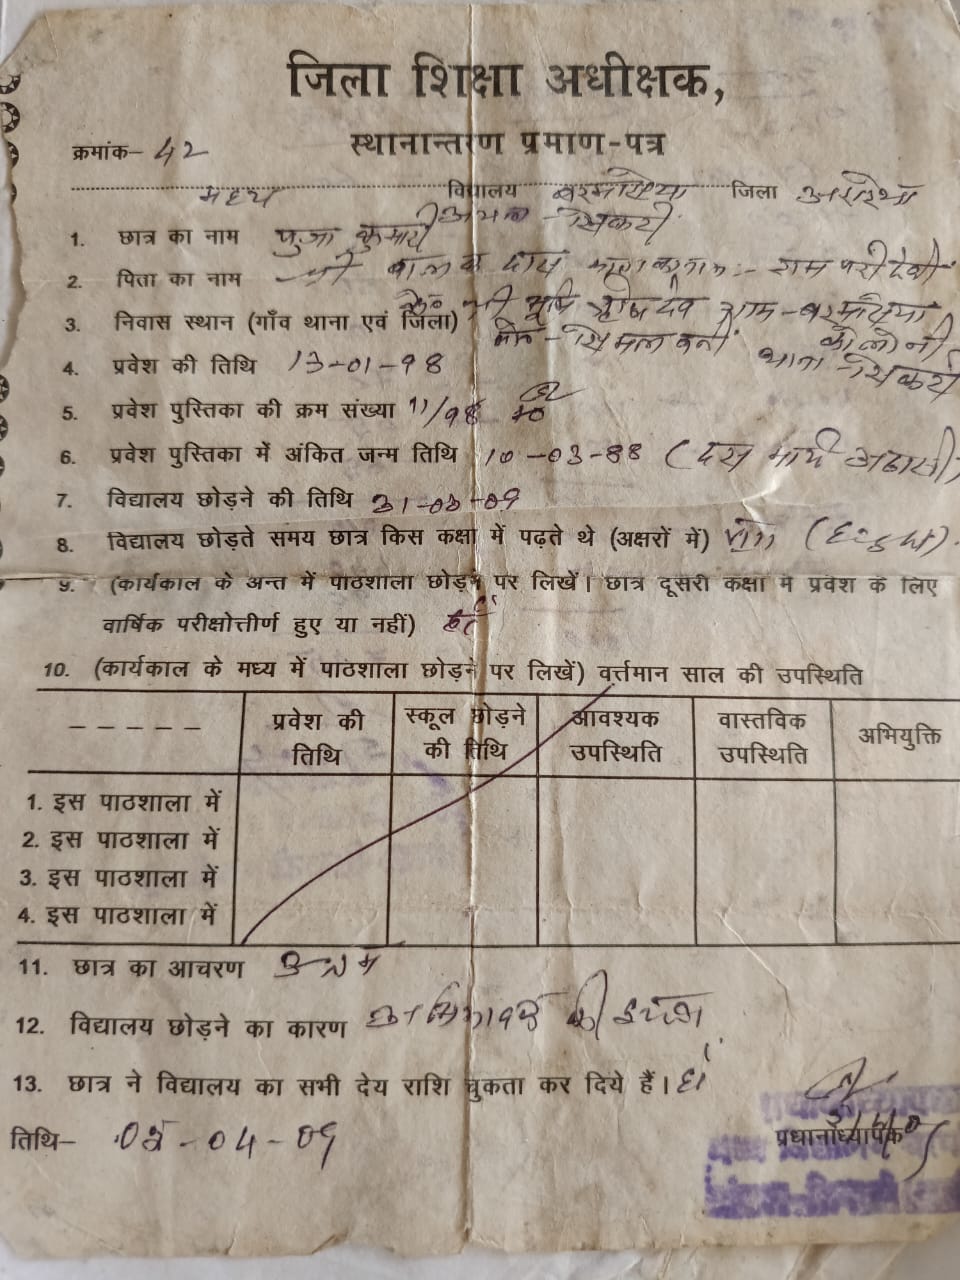 जिला शिक्षा अधीक्षक,
स्थानान्तरण प्रमाण-पत्र
क्रमांक- 42
मध्य विद्यालय बरमसिया जिला अररिया
अंचल - सिकटी
1. छात्र का नाम पुजा कुमारी
2. पिता का नाम श्री बालक दास माता का नाम :- राम परी देवी
3. निवास स्थान (गाँव थाना एवं जिला) ग्राम - बरमसिया
कोलोनी
थाना - सिकटी
4. प्रवेश की तिथि 13-01-98
5. प्रवेश पुस्तिका की क्रम संख्या 11/98
6. प्रवेश पुस्तिका में अंकित जन्म तिथि 10-03-88 (दस मार्च अठासी)
7. विद्यालय छोड़ने की तिथि 31-03-09
8. विद्यालय छोड़ते समय छात्र किस कक्षा में पढ़ते थे (अक्षरों में)
9. (कार्यकाल के अन्त में पाठशाला छोड़ने पर लिखें। छात्र दूसरी कक्षा में प्रवेश के लिए
वार्षिक परीक्षोत्तीर्ण हुए या नहीं) हाँ
10. (कार्यकाल के मध्य में पाठशाला छोड़ने पर लिखें) वर्त्तमान साल की उपस्थिति
– – – – – प्रवेश की तिथि स्कूल छोड़ने की तिथि आवश्यक उपस्थिति वास्तविक उपस्थिति अभियुक्ति
1. इस पाठशाला में
2. इस पाठशाला में
3. इस पाठशाला में
4. इस पाठशाला में
11. छात्र का आचरण उत्तम
12. विद्यालय छोड़ने का कारण अभिभावक की इच्छा
13. छात्र ने विद्यालय का सभी देय राशि चुकता कर दिये हैं। हाँ
तिथि- -04-09
प्रधानाध्यापक